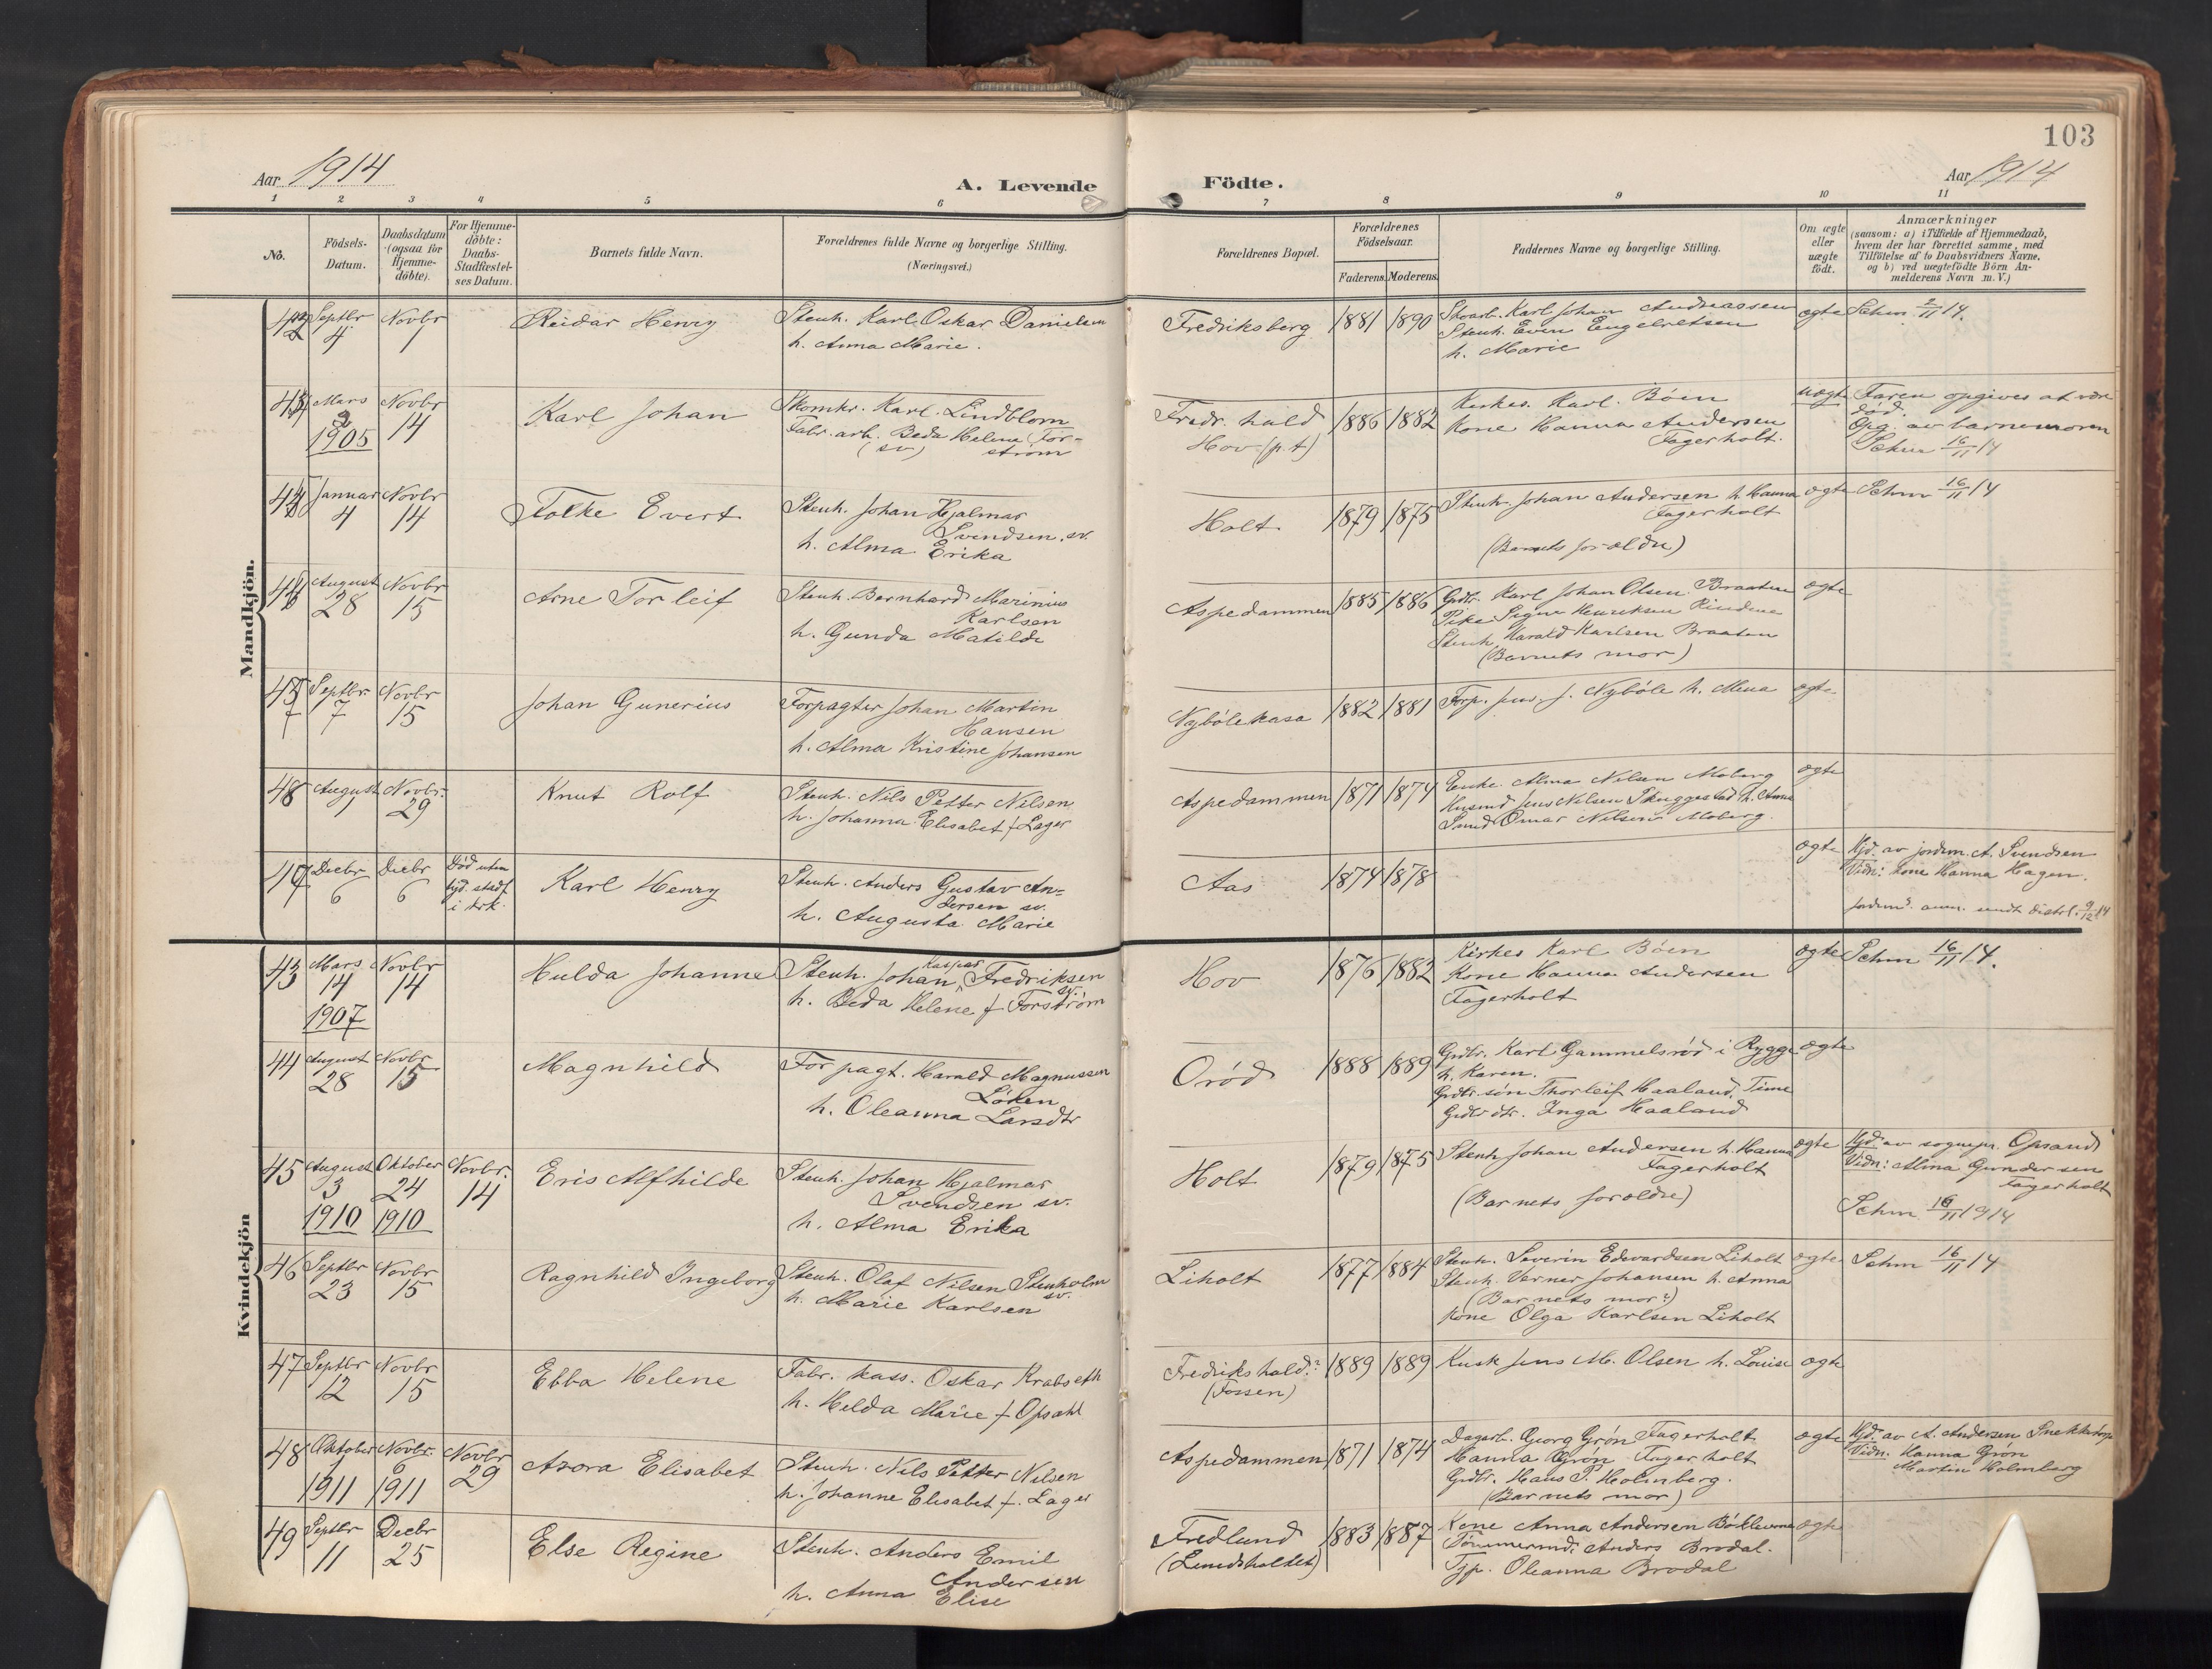 103
Aar 1914
A. Levende Födte.
Aar 1914
1 2 3 4 5 6 7 8 9 10 11
No.
Födsels-Datum.
Daabsdatum (ogsaa for Hjemme-döbte).
For Hjemme-döbte: Daabs-Stadfæstel-ses Datum.
Barnets fulde Navn.
Forældrenes fulde Navne og borgerlige Stilling.
(Næringsvei.)
Forældrenes Bopæl.
Forældrenes Födselsaar.
Faderens. Moderens.
Faddernes Navne og borgerlige Stilling.
Om ægte eller uægte födt.
Anmærkninger
(saasom: a) i Tilfælde af Hjemmedaab,
hvem der har forrettet samme, med
Tilföielse af to Daabsvidners Navne,
og b) ved uægtefödte Börn An-
melderens Navn m. V.)
Mandkjön.
42 Septbr 4 Novbr 1 Reidar Henry
Stenh. Karl Oskar Danielsen
h. Anna Marie.
Fredriksberg 1881 1890
Karl Johan Andreassen
Stenh. Even Engebretsen
h. Marie
ægte Schm 2/11 14.
Mars 2 1905 Novbr 14 Karl Johan
Skomkr. Karl Lindblom
Fabr. arb. Beda Helena For-
(sv) strøm
Fredr.hald
Hov (p.t)
1886 1882
Kirkes. Karl Böen
Kone Hanna Andersen
Fagerholt.
uægte Faren opgives at være
död.
Opg. av barnemoren
Schm 16/11 14
Januar 4 Novbr 14 Folke Evert
Stenh. Johan Hjalmar
Svendsen, sv.
h. Alma Erika
Holt 1879 1875
Stenh. Johan Andersen h. Hanna
Fagerholt
(Barnets forældre)
ægte Schm 16/11 14
August 28 Novbr 15 Arne Torleif
Stenh. Bernhard Marinius
Karlsen
h. Gunda Matilde
Aspedammen 1885 1886
Grdbr. Karl Johan Olsen Braaten
Pike Signe Henriksen
Stenh. Harald Karlsen Braaten
(Barnets mor)
ægte
Septbr 7 Novbr 15 Johan Gunerius
Forpagter Johan Martin
Hansen
h. Alma Kristine Johansen
Nybölekasa 1882 1881
Forp. Jens J. Nyböle h. Mina
ægte
48 August 1 Novbr. 29 Knut Rolf
Stenh. Nils Petter Nilsen
h. Johanna Elisabet f. Lager
Aspedammen 1871 1874
Enke Alma Nilsen Moberg
Husmd Jens Nilsen Skuggestad h. Anna
Smed Omar Nilsen Moberg.
ægte
Decbr 6 Decbr 6 Död uten
stadf.
i kirk.
Karl Henry
Stenh. Anders Gustav An-
dersen sv.
h. Augusta Marie
Aas 1874 1878
ægte Hjd. av jordm. A. Svendsen
Vidn: kone Hanna Hagen.
9/12 14
Kvindekjön
43 Mars 14 1907 Novbr 14 Hulda Johanne
Stenh. Johan Kaspar Fredriksen
sv.
h. Beda Helene f Forström
Hov 1876 1882
Kirkes Karl Böen
Kone Hanna Andersen
Fagerholt
ægte Schm 16/11 14.
44 August 28 Novbr 15 Magnhild
Forpagt. Harald Magnussen
Löken
h. Oleanna Larsdtr
Oröd 1888 1889
Grdbr. Karl Gammelsröd i Rygge
h. Karen.
Grdbr. sön Thorleif Haaland, Time
Grdbr dtr. Inga Haaland
ægte
45 August 3 1910 Oktober 24 1910 Novbr. 14 Eris Alfhilde
Stenh. Johan Hjalmar
Svendsen sv.
h. Alma Erika
Holt 1879 1875
Stenh Johan Andersen h. Hanna
Fagerholt
(Barnets forældre)
ægte Hjd. av sognepr. Opsand
Vidn: Alina Gundersen
Fagerholt
Schm 16/11 1914
46 Septbr 23 Novbr 15 Ragnhild Ingeborg
Stenh. Olaf Nilsen Stenholm
sv.
h. Marie Karlsen
Liholt 1877 1884
Stenh. Severin Edvardsen Liholt
Stenh. Verner Johansen h. Anna
(Barnets mor?)
kone Olga Karlsen Liholt
ægte Schm 16/11 14
47 Septbr 12 Novbr 15 Ebba Helene
Fabr. kass. Oskar Krabseth
h. Helda Marie f Opsahl
Fredrikshald?
(Fossen)
1889 1889
Kusk Jens M. Olsen h. Louise
ægte
48 Oktober 1 1911 Novbr. 6 1911 Novbr 29 Azora Elisabet
Stenh. Nils Petter Nilsen
h. Johanne Elisabet f. Lager
Aspedammen 1871 1874
Dagarb. Georg Grön Fagerholt
Hanna Grön Fagerholt
Grdbr. Hans P. Holmberg.
(Barnets mor)
ægte Hjd. av A. Andersen
Vidn. Hanna Grön
Martin Holmberg
49 Septbr 11 Decbr 25 Else Regine
Stenh. Anders Emil
Andersen
h. Anna Elise
Fredlund
1883 1887
Kone Anna Andersen
Tömmermd. Anders Brodal.
Tjp. Oleanna Brodal
ægte